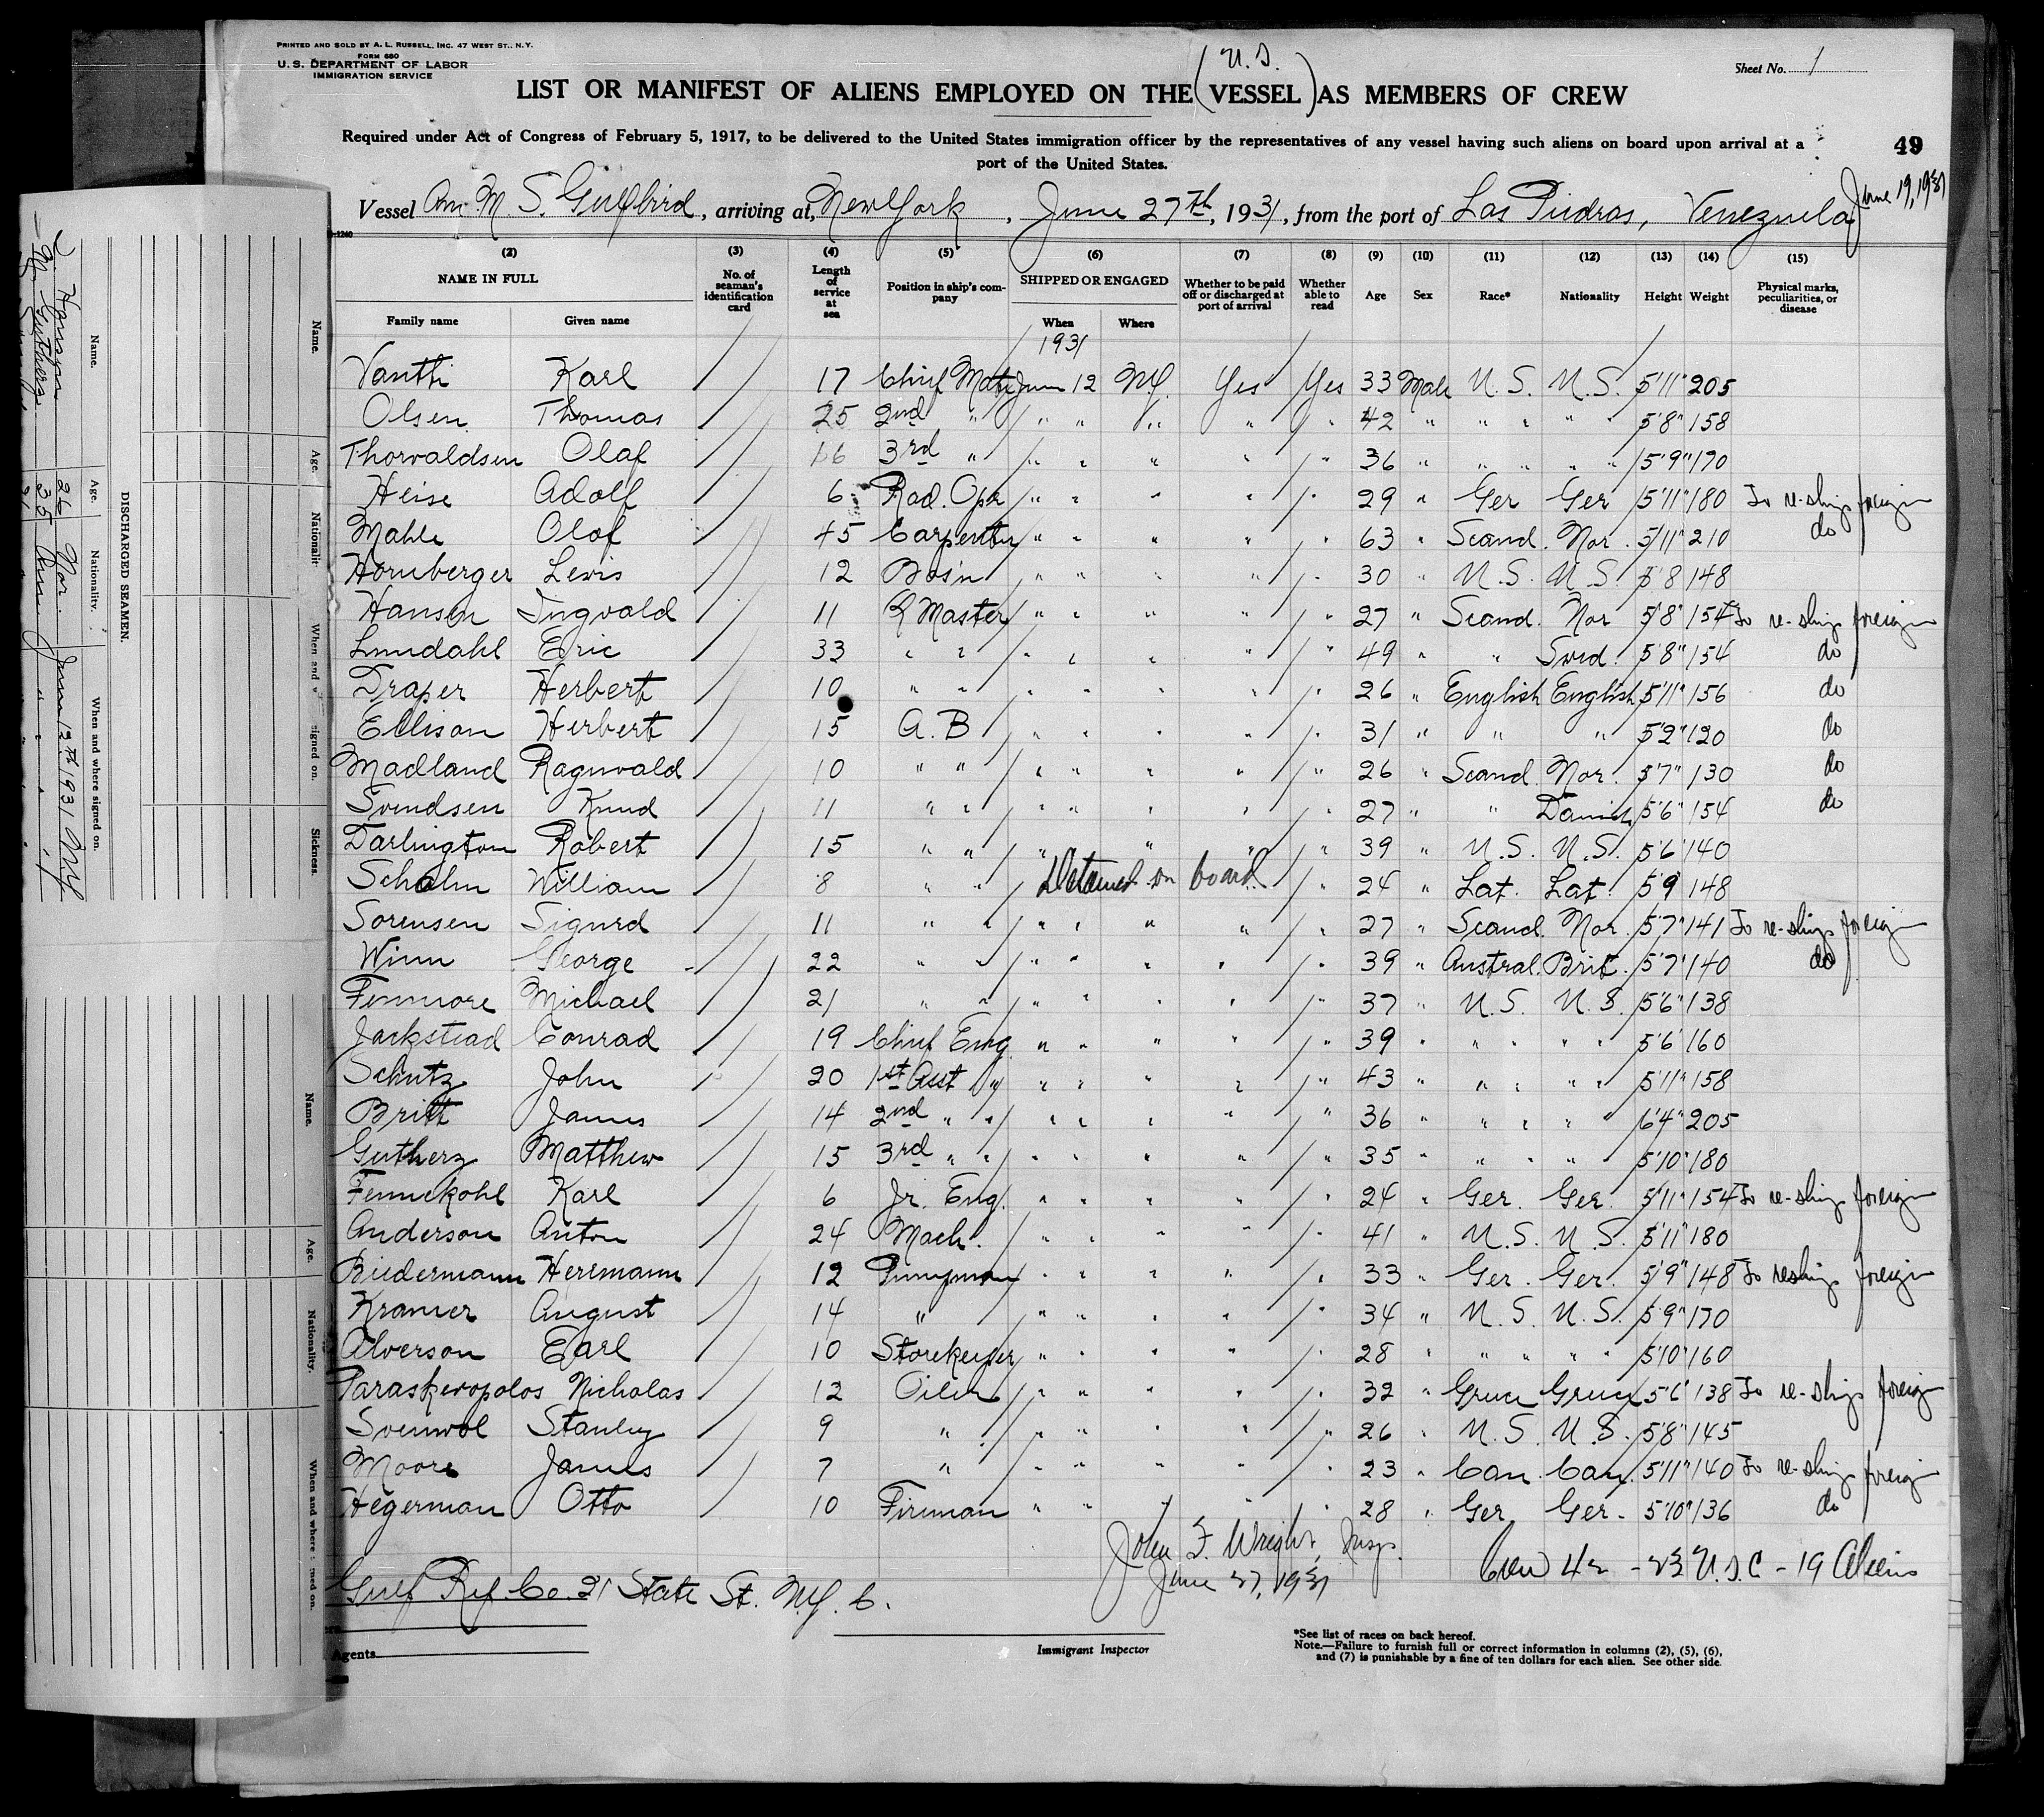 PRINTED AND SOLD BY A. L. RUSSELL, INC. 47 WEST ST., N.Y.
FORM 680
U. S. DEPARTMENT OF LABOR
IMMIGRATION SERVICE
Sheet No. 1
U. S.
LIST OR MANIFEST OF ALIENS EMPLOYED ON THE (VESSEL) AS MEMBERS OF CREW
Required under Act of Congress of February 5, 1917, to be delivered to the United States immigration officer by the representatives of any vessel having such aliens on board upon arrival at a
port of the United States.
49
Vessel Am. M. S. Gulfbird, arriving at New York, June 27th, 1931, from the port of Las Piedras, Venezuela June 19, 1931
(2) (3) (4) (5) (6) (7) (8) (9) (10) (11) (12) (13) (14) (15)
NAME IN FULL No. of seaman's identification card Length of service at sea Position in ship's company SHIPPED OR ENGAGED Whether to be paid off or discharged at port of arrival Whether able to read Age Sex Race* Nationality Height Weight Physical marks, peculiarities, or disease
Family name Given name When Where
1931
Vantti Karl 17 Chief Mate June 12 N.Y. Yes Yes 33 Male U. S. U. S. 5'11" 205
Olsen Thomas 25 2nd " " " " " " 42 " " " " " 5'8" 158
Thorvaldsen Olaf 16 3rd " " " " " " 36 " " " " " 5'9" 170
Heise Adolf 6 Rad. Opr " " " " " 29 " Ger Ger 5'11" 180 To re-ship foreign
Mahle Olof 45 Carpenter " " " " " 63 " Scand. Nor. 5'11" 210 do
Hornberger Lewis 12 Bos'n " " " " " 30 " U. S. U. S. 5'8 148
Hansen Ingvald 11 Q Master " " " " " 27 " Scand. Nor 5'8" 154 To re-ship foreign
Lundahl Eric 33 " " " " " " " 49 " " Swed. 5'8" 154 do
Draper Herbert 10 " " " " " " " 26 " English English 5'11" 156 do
Ellison Herbert 15 A. B " " " " " 31 " " " 5'2" 120 do
Madland Ragnvald 10 " " " " " " " 26 " Scand. Nor. 5'7" 130 do
Svendsen Knud 11 " " " " " " " 27 " " Danish 5'6" 154 do
Darlington Robert 15 " " " " " " 39 " U. S. U. S. 5'6" 140
Schalm William 8 " " Detained on board " 24 " Lat. Lat. 5'9 148
Sorensen Sigurd 11 " " " " " " " 27 " Scand. Nor. 5'7" 141 To re-ship foreign
Winn George 22 " " " " " " " 39 " Austral. Brit. 5'7" 140 do
Fenmore Michael 21 " " " " " " " 37 " U. S. U. S. 5'6" 138
Jackstead Conrad 19 Chief Eng. " " " " " 39 " " " " " 5'6 160
Schutz John 20 1st Asst " " " " " " 43 " " " " " 5'11" 158
Britt James 14 2nd " " " " " " " 36 " " " " " 6'4" 205
Gutherz Matthew 15 3rd " " " " " " " 35 " " " " 5'10" 180
Fennekohl Karl 6 Jr. Eng. " " " " " 24 " Ger. Ger. 5'11" 154 To re-ship foreign
Anderson Anton 24 Mach. " " " " " 41 " U. S. U. S. 5'11" 180
Biedermann Hermann 12 Pumpman " " " " " 33 " Ger. Ger. 5'9" 148 To reship foreign
Kramer August 14 " " " " " " 34 " U. S. U. S. 5'9" 170
Alverson Earl 10 Storekeeper " " " " " 28 " " " " " 5'10" 160
Paraskevopolos Nicholas 12 Oiler " " " " " 32 " Greece Greece 5'6" 138 To re-ship foreign
Stanley 9 " " " " " " 26 " U. S. U. S. 5'8" 145
Moore James 7 " " " " " " 23 " Can. Can. 5'11" 140 To re-ship foreign
Hegerman Otto 10 Fireman " " " " " 28 " Ger. Ger. 5'10" 136 do
John F. Wright, Insp.
June 27, 1931
Crew 42 - 23 U.S.C - 19 Aliens
Gulf Ref. Co. 21 State St. N.Y. C.
Agents
Immigrant Inspector
*See list of races on back hereof.
Note.—Failure to furnish full or correct information in columns (2), (5), (6),
and (7) is punishable by a fine of ten dollars for each alien. See other side.
DISCHARGED SEAMEN.
Name. Age. Nationality. When and where signed on.
Hansen 26 Nor. June 12th 1931 N.Y.
Gutherz 35 Am. " "
Name. Age. Nationalit When and signed on. Sickness.
Name. Age. Nationality. When and where signed on.